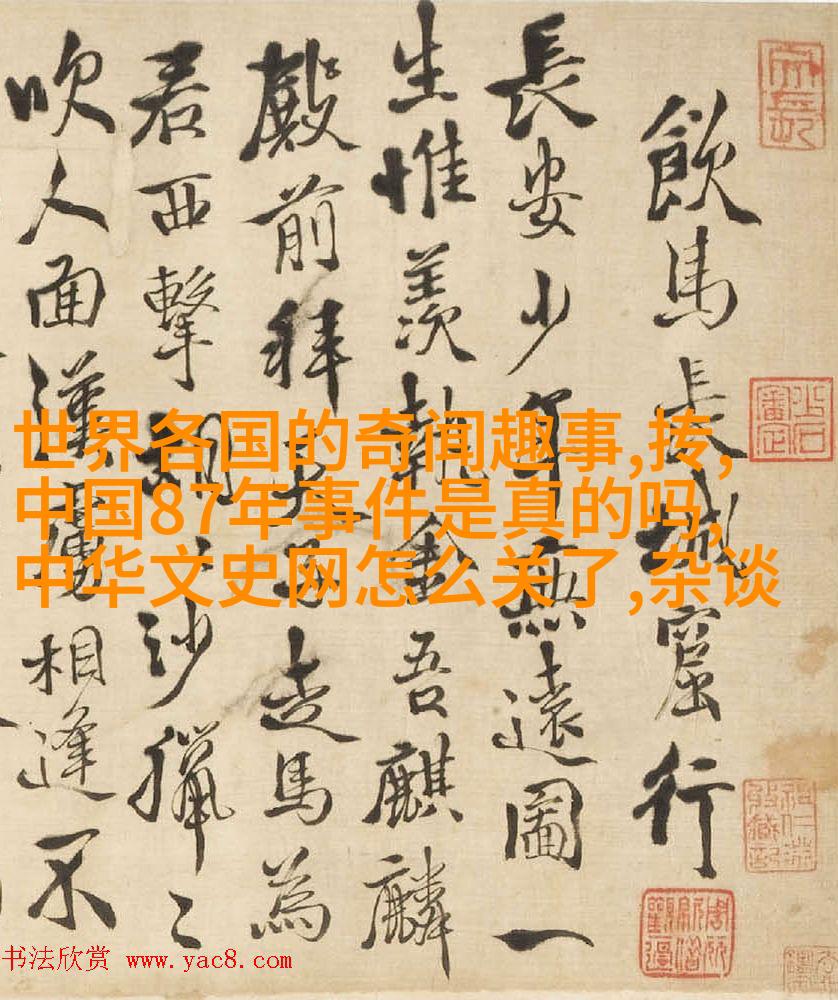 飲馬長城窟行
長安少年無遠圖一
生惟羨執金吾麒麟
殿前拜天子走馬為
君西擊胡〻沙獵〻
吹人面漢虜相逢不
世界各国的奇闻趣事,抟,
中国87年事件是真的吗,
中华文史网怎么关了,杂谈
书法欣赏 www.yac8.com